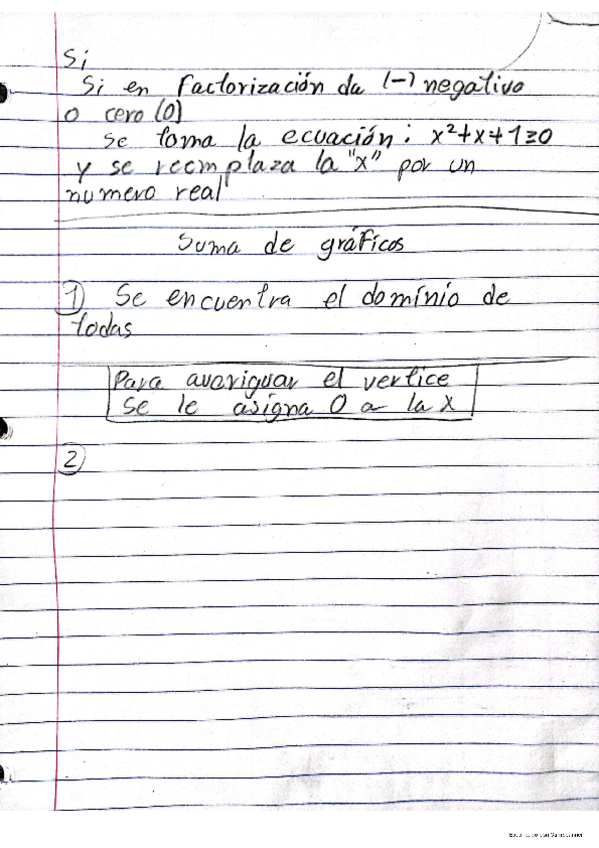 Si
Si en factorización da (-) negativo
o cero (0)
Se toma la ecuación: x²+x+1≥0
y se reemplaza la "x" por un
numero real
Suma de gráficos
1) Se encuentra el dominio de
todas
Para avariguar el vertice
se le asigna 0 a la x
2)